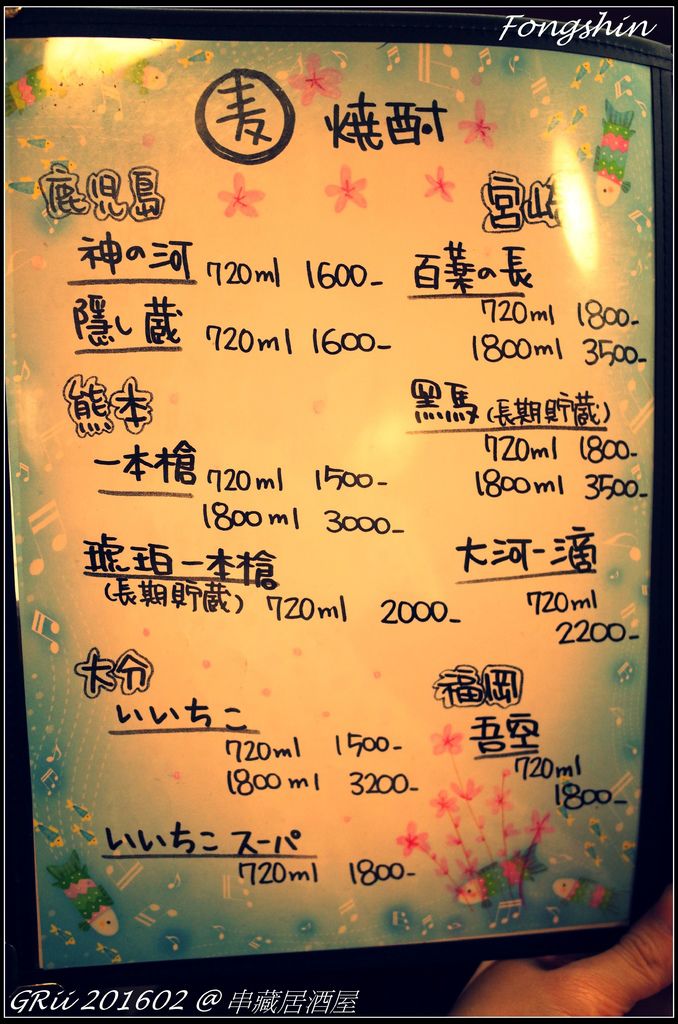 Fongshin
麦 焼酎
鹿児島
神の河 720ml 1600-
隠し蔵 720ml 1600-
熊本
一本槍 720ml 1500-
1800ml 3000-
琥珀一本槍
(長期貯蔵) 720ml 2000-
大分
いいちこ
720ml 1500-
1800ml 3200-
いいちこ スーパ
720ml 1800-
宮崎
百葉の長
720ml 1800-
1800ml 3500-
黒馬(長期貯蔵)
720ml 1800-
1800ml 3500-
大河一滴
720ml
2200-
福岡
吾空
720ml
1800-
GRii 201602 @ 串藏居酒屋